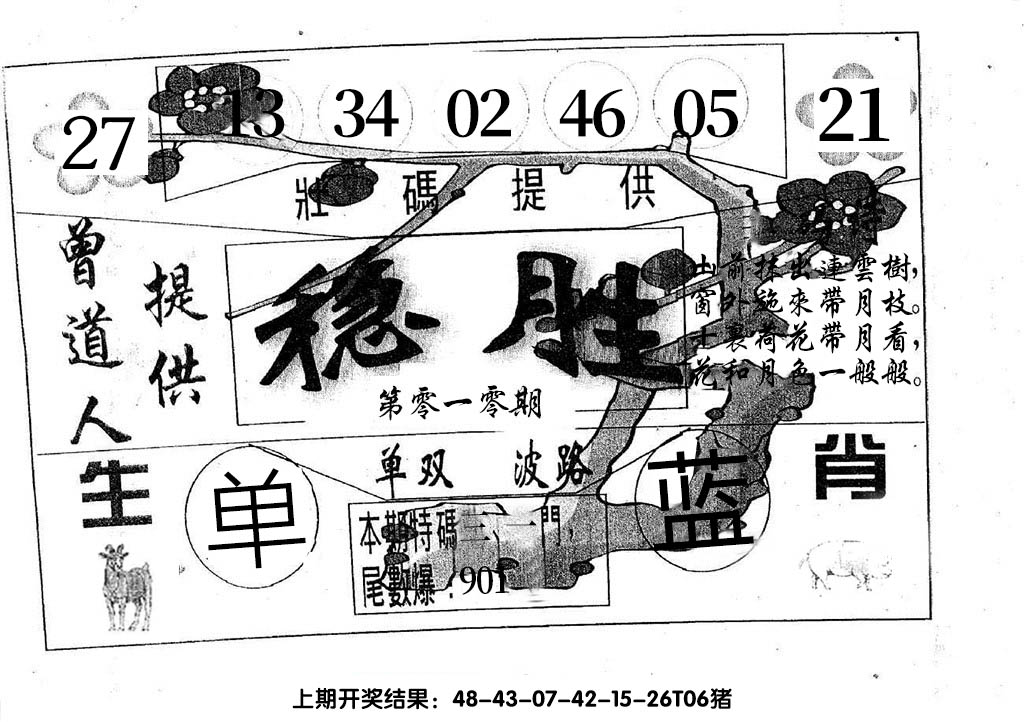 27 13 34 02 46 05 21
壯碼提供
曾道人
提供
稳胜
第零一零期
前抹出連雲樹，
窗外施來帶月枝。
裏荷花帶月看，
花和月色一般般。
单双 波路
生肖
单
蓝
本期特碼三、一門，
尾數爆：901
上期开奖结果：48-43-07-42-15-26T06猪